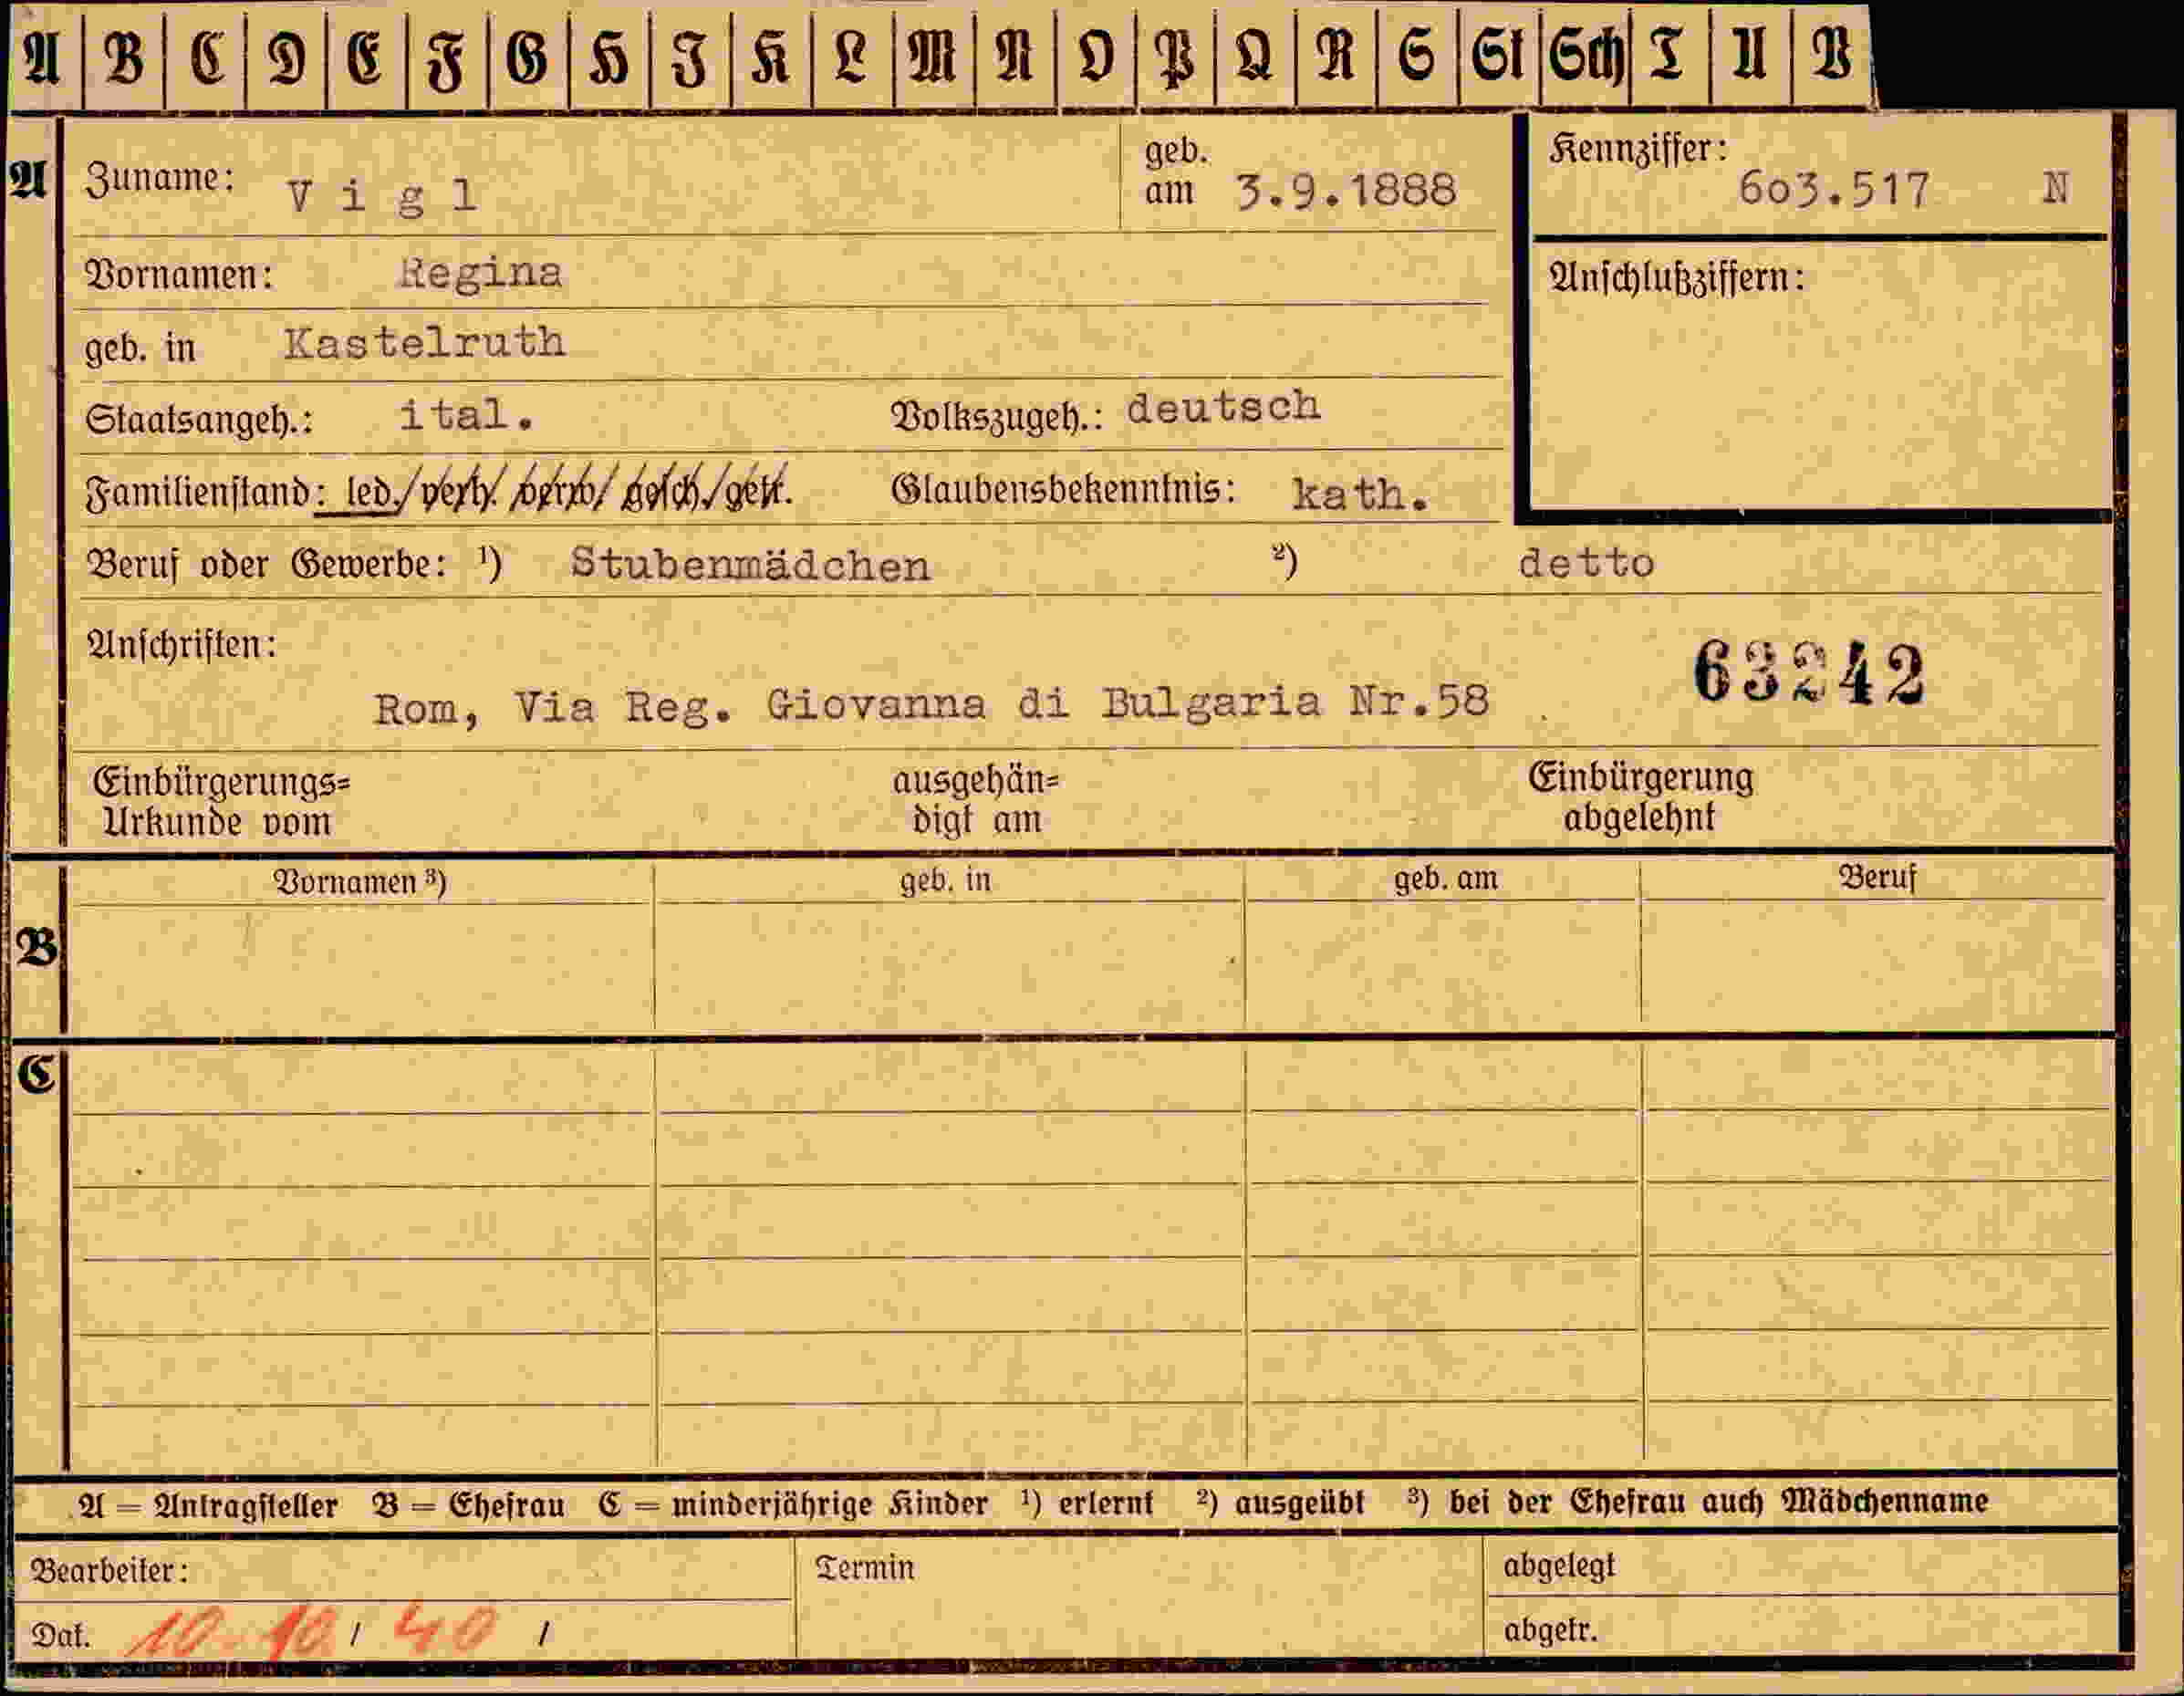 A B C D E F G H I K L M N O P Q R S St Sch T U V
A Zuname: Vigl geb. am 3.9.1888 Kennziffer: 603.517 N
Vornamen: Regina Anschlußziffern:
geb. in Kastelruth
Staatsangeh.: ital. Volkszugeh.: deutsch
Familienstand: led./verh./verw./gesch./getr. Glaubensbekenntnis: kath.
Beruf oder Gewerbe: ¹) Stubenmädchen ²) detto
Anschriften: 63242
Rom, Via Reg. Giovanna di Bulgaria Nr.58
Einbürgerungs= ausgehän= Einbürgerung
Urkunde vom digt am abgelehnt
Vornamen ³) geb. in geb. am Beruf
B
C
A = Antragsteller B = Ehefrau C = minderjährige Kinder ¹) erlernt ²) ausgeübt ³) bei der Ehefrau auch Mädchenname
Bearbeiter: Termin abgelegt
Dat. 10. 10 / 40 / abgetr.